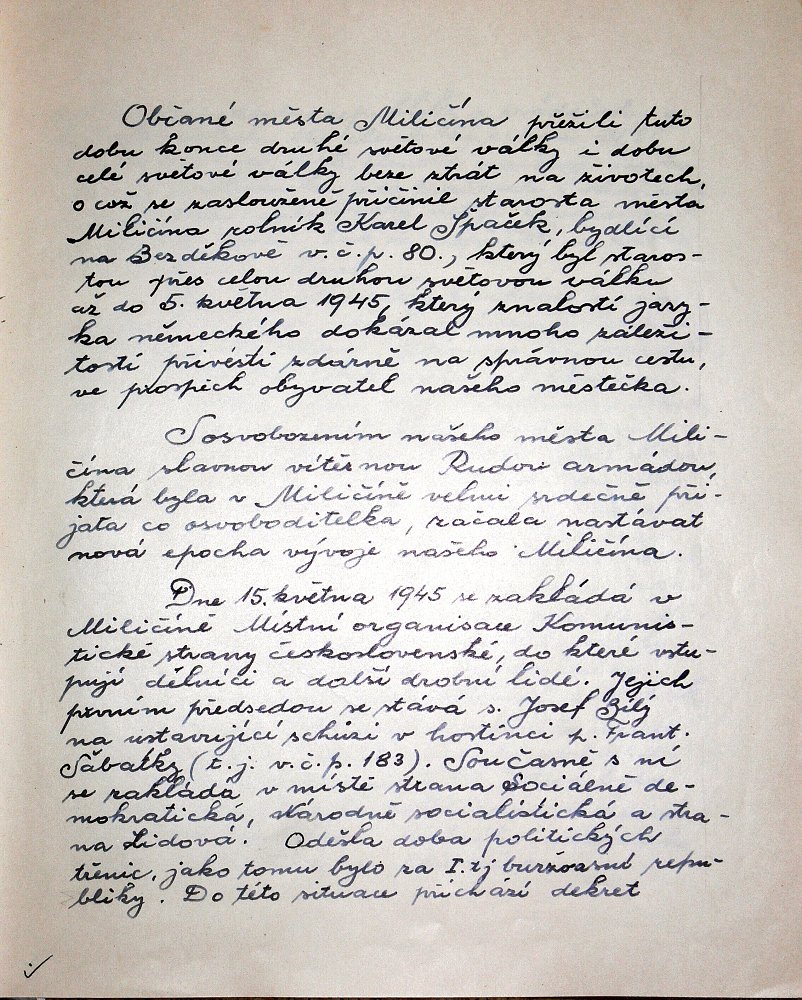 Občané města Miličína přežili tuto
dobu konce druhé světové války i dobu
celé světové války beze ztrát na životech,
o což se zaslouženě přičinil starosta města
Miličína rolník Karel Špaček, bydlící
na Bezděkově v.č.p. 80., který byl staros-
tou přes celou druhou světovou válku
až do 5. května 1945, který znalostí jazy-
ka německého dokázal mnoho záleži-
tostí přivésti zdárně na správnou cestu,
ve prospěch obyvatel našeho městečka.
S osvobozením našeho města Mili-
čína slavnou vítěznou Rudou armádou,
která byla v Miličíně velmi srdečně při-
jata co osvoboditelka, začala nastávat
nová epocha vývoje našeho Miličína.
Dne 15. května 1945 se zakládá v
Miličíně Místní organisace Komunis-
tické strany československé, do které vstu-
pují dělníci a další drobní lidé. Jejich
prvním předsedou se stává s. Josef Bílý
na ustavující schůzi v hostinci p. Frant.
Šabatky (t.j. v.č.p. 183). Současně s ní
se zakládá v místě strana Sociálně de-
mokratická, Národně socialistická a stra-
na Lidová. Odešla doba politických
třenic, jako tomu bylo za I. tj buržoasní repu-
bliky. Do této situace přichází dekret